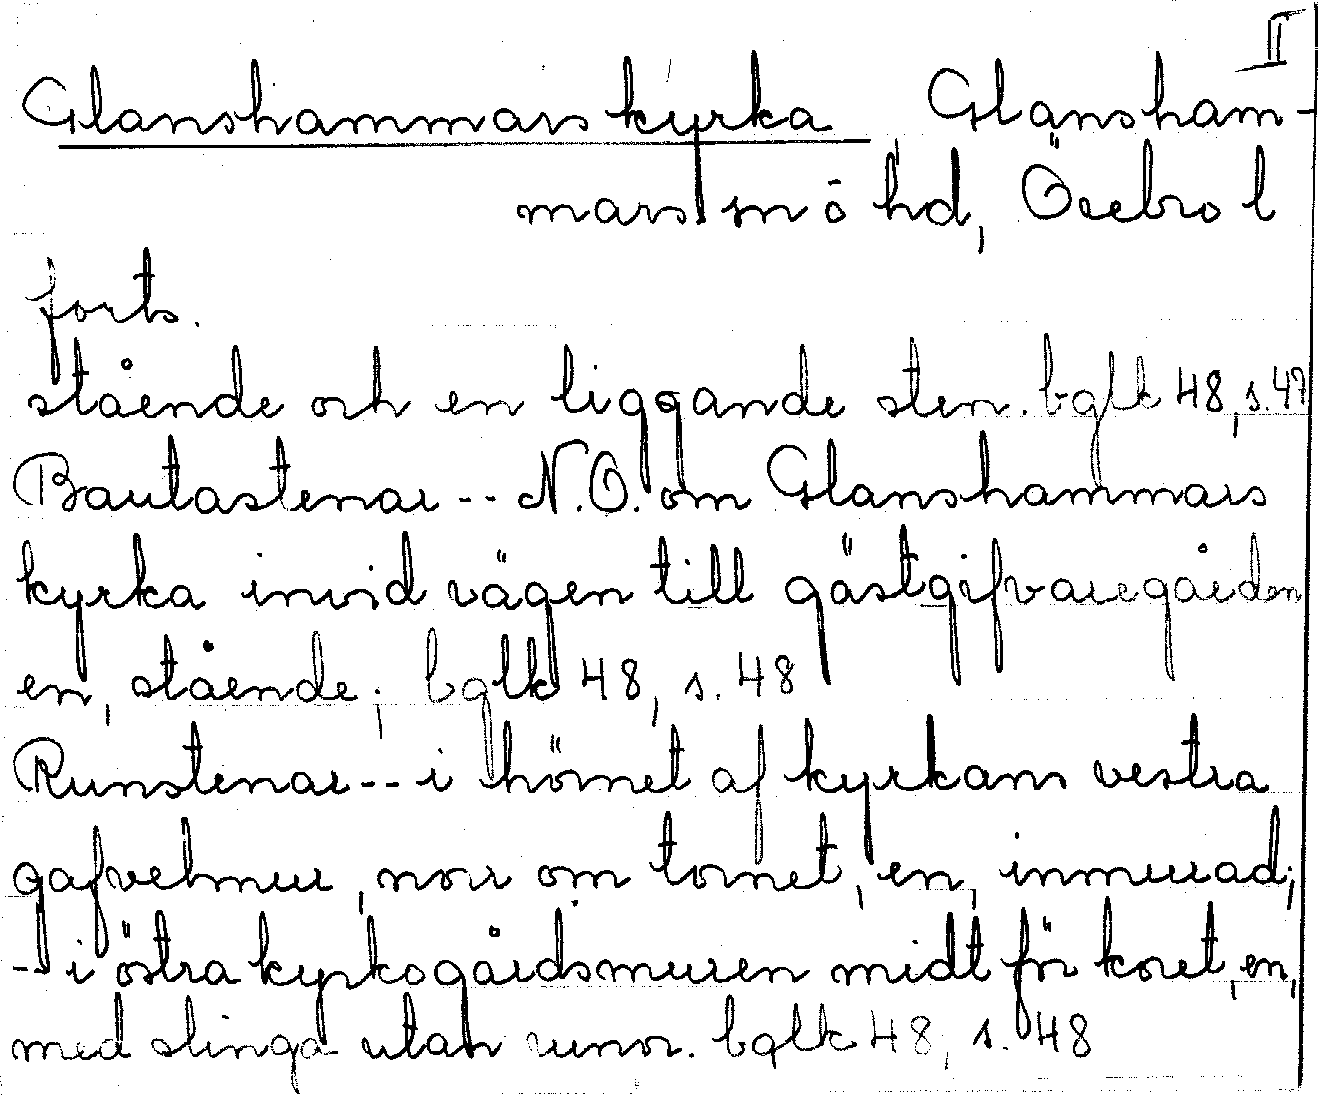 II
Glanshammars kyrka Glansham-
mars sn ö hd, Örebro l
forts.
stående och en liggande sten. bglk 48, s. 47
Bautastenar -- N.O. om Glanshammars
kyrka invid vägen till gästgifvaregården
en, stående; bglk 48, s. 48
Runstenar -- i hörnet af kyrkans vestra
gafvelmur, norr om tornet, en, inmurad;
-- i östra kyrkogårdsmuren midt för koret, en,
med slinga utan runor. bglk 48, s. 48